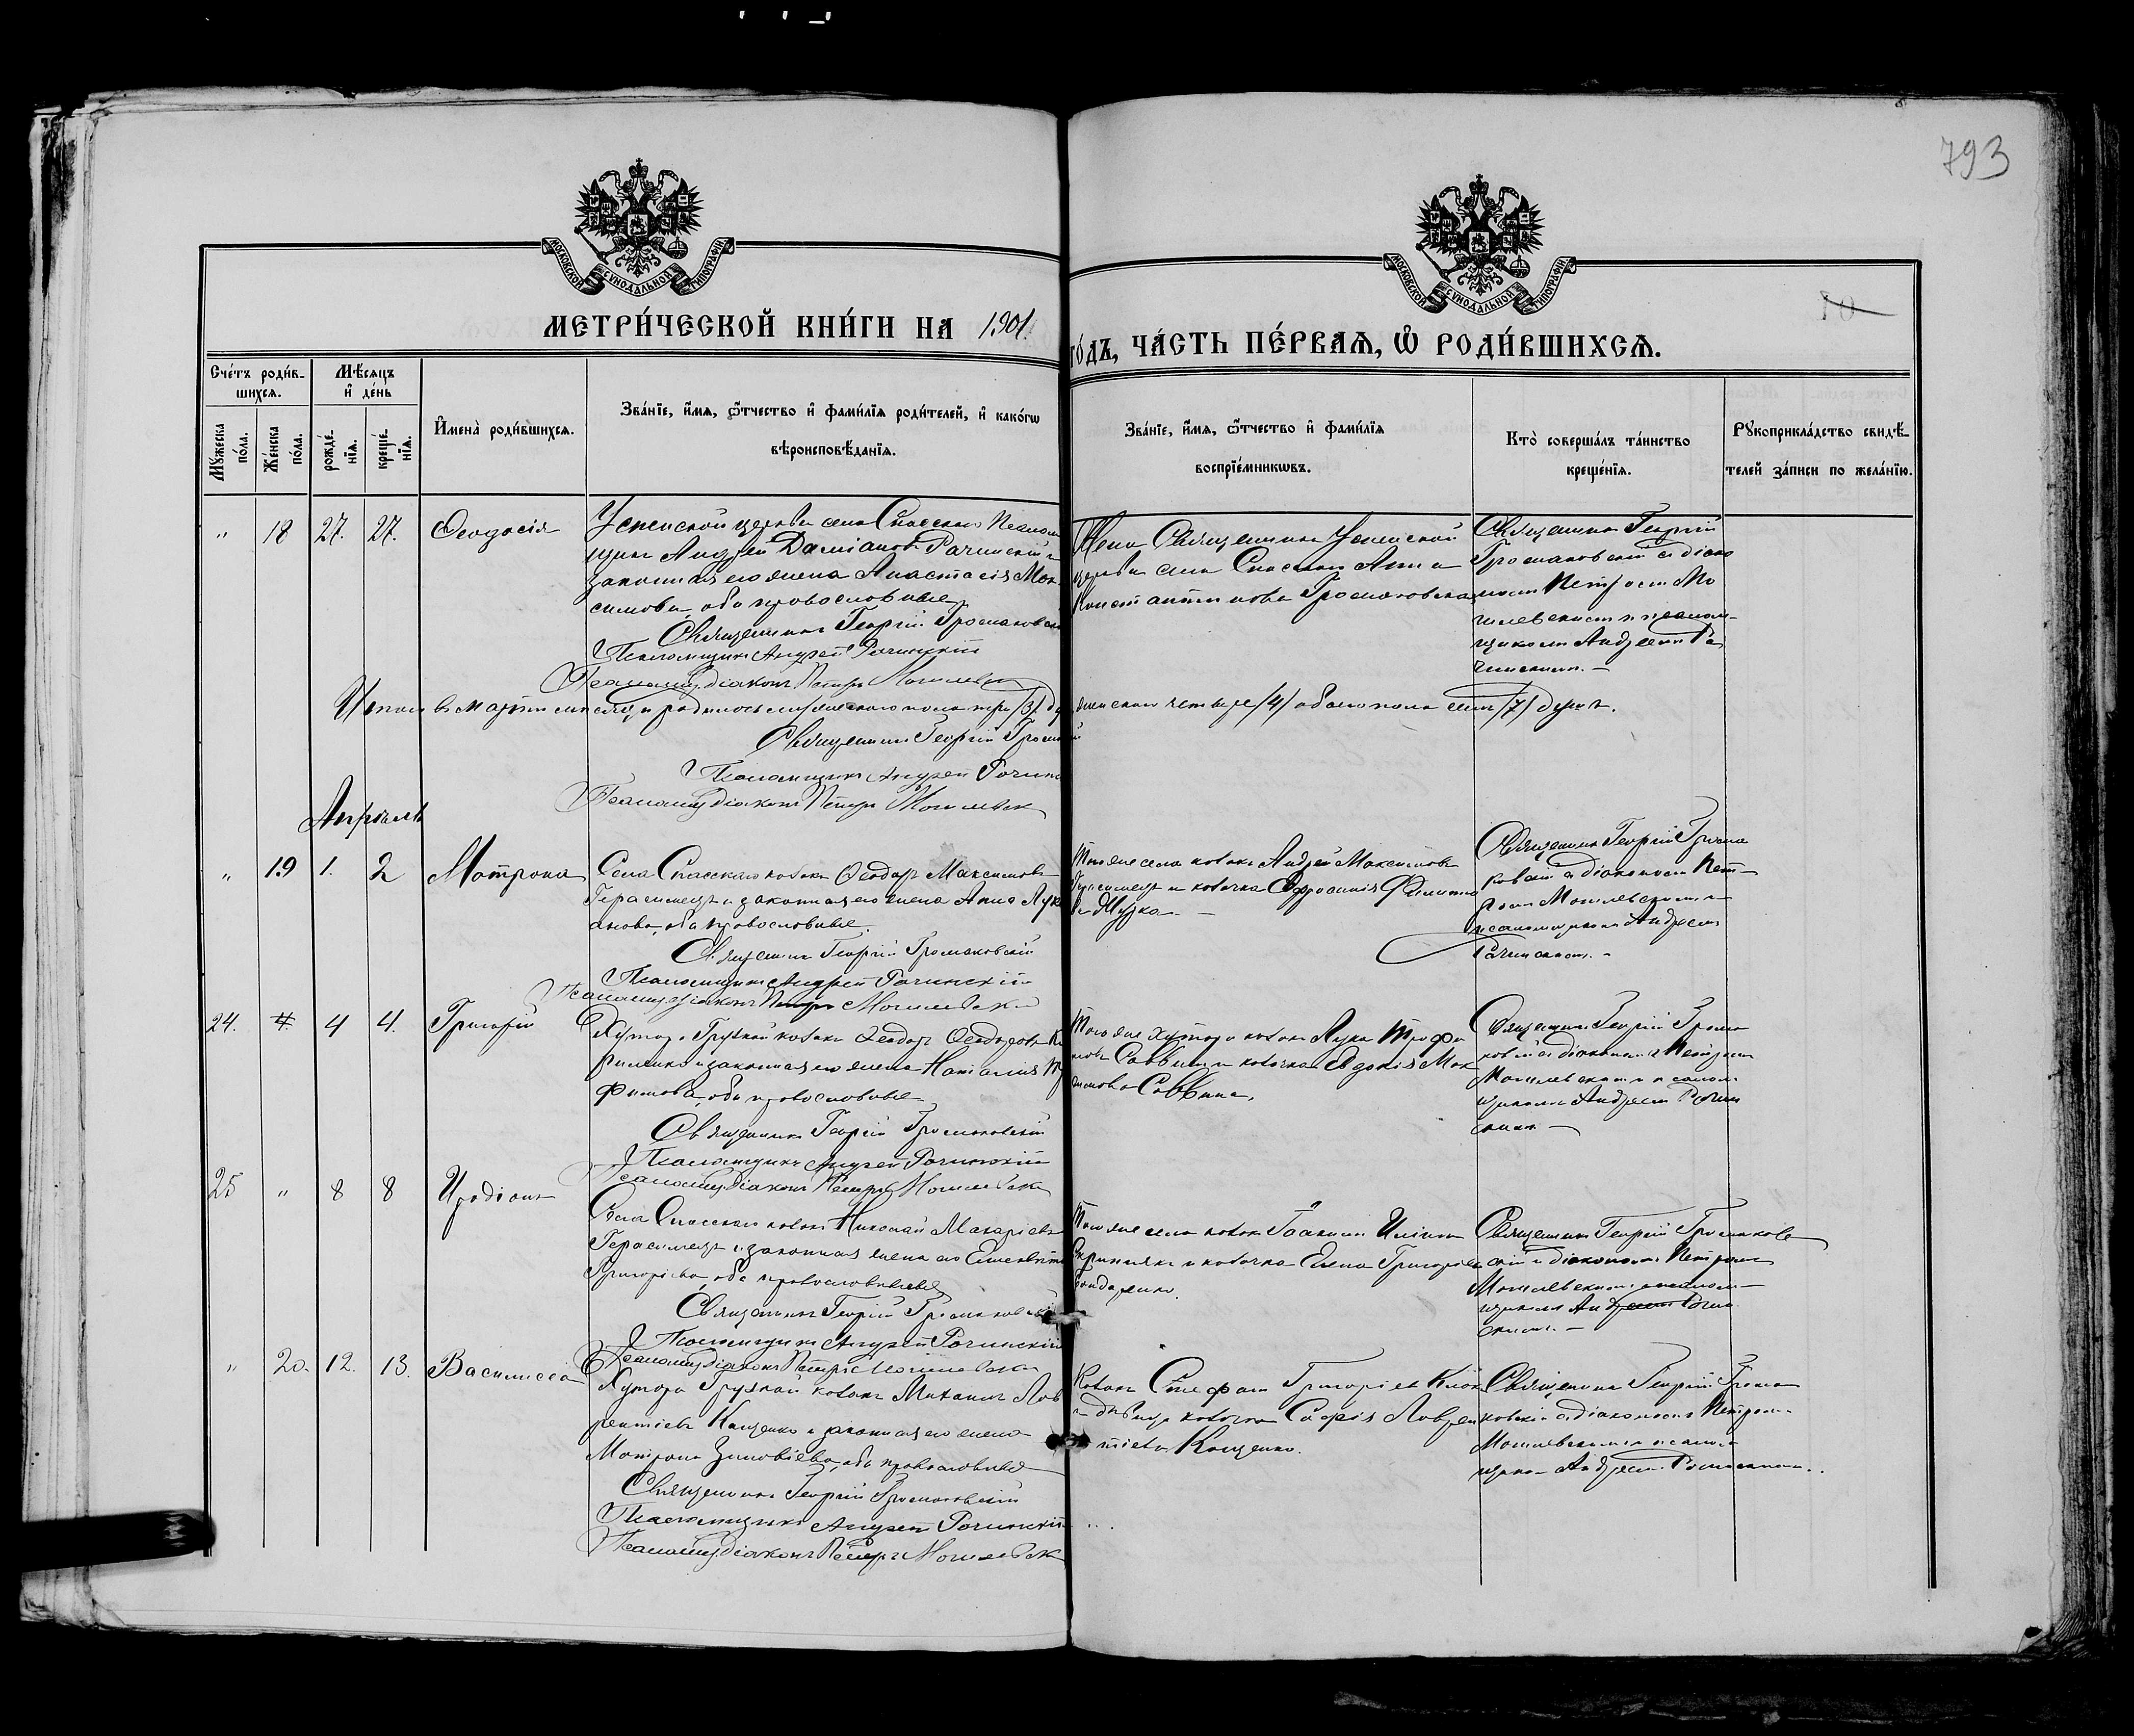 793
10
МОСКОВСКОЙ СУНОДАЛЬНОЙ ТИПОГРАФІИ
МОСКОВСКОЙ СУНОДАЛЬНОЙ ТИПОГРАФІИ
МЕТРИ́ЧЕСКОЙ КНИ́ГИ НА 1901.
ГО́ДЪ, ЧА́СТЬ ПЕ́РВАѦ, Ѡ҆ РОДИ́ВШИХСѦ.
Сче́тъ роди́в-
шихсѧ.
Мѣ́сѧцъ
и҆ де́нь
Мꙋ́жеска
по́ла.
Же́нска
по́ла.
рожде́-
нїѧ.
креще́-
нїѧ.
И҆мена̀ роди́вшихсѧ.
Зва́нїе, и҆́мѧ, ѻ҆́тчество и҆ фами́лїѧ роди́телей, и҆ како́гѡ
вѣроисповѣ́данїѧ.
Зва́нїе, и҆́мѧ, ѻ҆́тчество и҆ фами́лїѧ
воспрїе́мникѡвъ.
Кто̀ соверша́лъ та́инство
креще́нїѧ.
Рꙋкоприкла́дство свидѣ́-
телей за́писи по жела́нїю.
" 18 27. 27. Ѳеодосія
Успенской церкви села Спасскаго Псалом
щикъ Андрей Даміановъ Рачинскій и
законная его жена Анастасія Мак
симова, оба православные
Священникъ Георгій Громаковскій
Псаломщикъ Андрей Рачинскій
Псаломщ. діаконъ Петръ Могилевскій
Жена Священника Успенской
церкви села Спасскаго Анна
Константинова Громаковская
Священникъ Георгій
Громаковскій съ діако
номъ Петромъ Мо
гилевскимъ и псалом-
щикомъ Андреемъ Ра
чинскимъ. -
Итого въ мартѣ мѣсяцѣ родилось мужескаго пола три /3/, женскаго четыре /4/ обоего пола семь /7/ душъ.
Священникъ Георгій
Псаломщикъ Андрей
Псаломщ. діаконъ Петръ Могилевск
Апрѣль
" 19 1. 2 Матрона
Села Спасскаго козакъ Ѳеодоръ Максимовъ
Герасимецъ и законная его жена Анна Лук
анова, оба православные.
Священникъ Георгій Громаковскій
Псаломщикъ Андрей Рачинскій
Псаломщ. діаконъ Петръ Могилевскій
Того же села козакъ Андрей Максимовъ
Герасимецъ и козачка Евфросинія
Священникъ Георгій Грома
ковскій съ діакономъ Пет-
ромъ Могилевскимъ и
псаломщикомъ Андреемъ
Рачинскимъ. -
24. " 4 4. Григорій
Хутора Грузкой козакъ Ѳеодоръ Ѳеодоровъ
и законная его жена Наталія
фимова, оба православные
Священникъ Георгій Громаковскій
Псаломщикъ Андрей Рачинскій
Псаломщ. діаконъ Петръ Могилевскій
Того же хутора козакъ Лука Трофи
мовъ Саввинъ и козачка Евдокія Мак
симова Саввина.
Священникъ Георгій Грома
ковскій съ діакономъ Петромъ
Могилевскимъ и псалом
щикомъ Андреемъ Рачин
скимъ -
25 " 8 8 Иродіонъ
Села Спасскаго козакъ Николай Макаріевъ
Герасимецъ и законная жена его Елисавета
Григоріева, оба православные
Священникъ Георгій Громаковскій
Псаломщикъ Андрей Рачинскій
Псаломщ. діаконъ Петръ Могилевскій
Того же села козакъ Іоакимъ
и козачка Елена Григоріева
Бондаренко.
Священникъ Георгій Громаков
скій съ діакономъ Петромъ
Могилевскимъ и псалом
щикомъ Андреемъ Рачин
скимъ. -
" 20. 12. 13. Василисса
Хутора Грузкой козакъ Михаилъ Лав
рентіевъ Кащенко и законная его жена
Матрона Зиновіева, оба православные
Священникъ Георгій Громаковскій
Псаломщикъ Андрей Рачинскій
Псаломщ. діаконъ Петръ Могилевск
Козакъ Стефанъ Григоріевъ
и дѣвица козачка Софія Лаврен
тіева Кащенко.
Священникъ Георгій Грома
ковскій съ діакономъ Петромъ
Могилевскимъ и псалом
щикомъ Андреемъ Рачинскимъ.